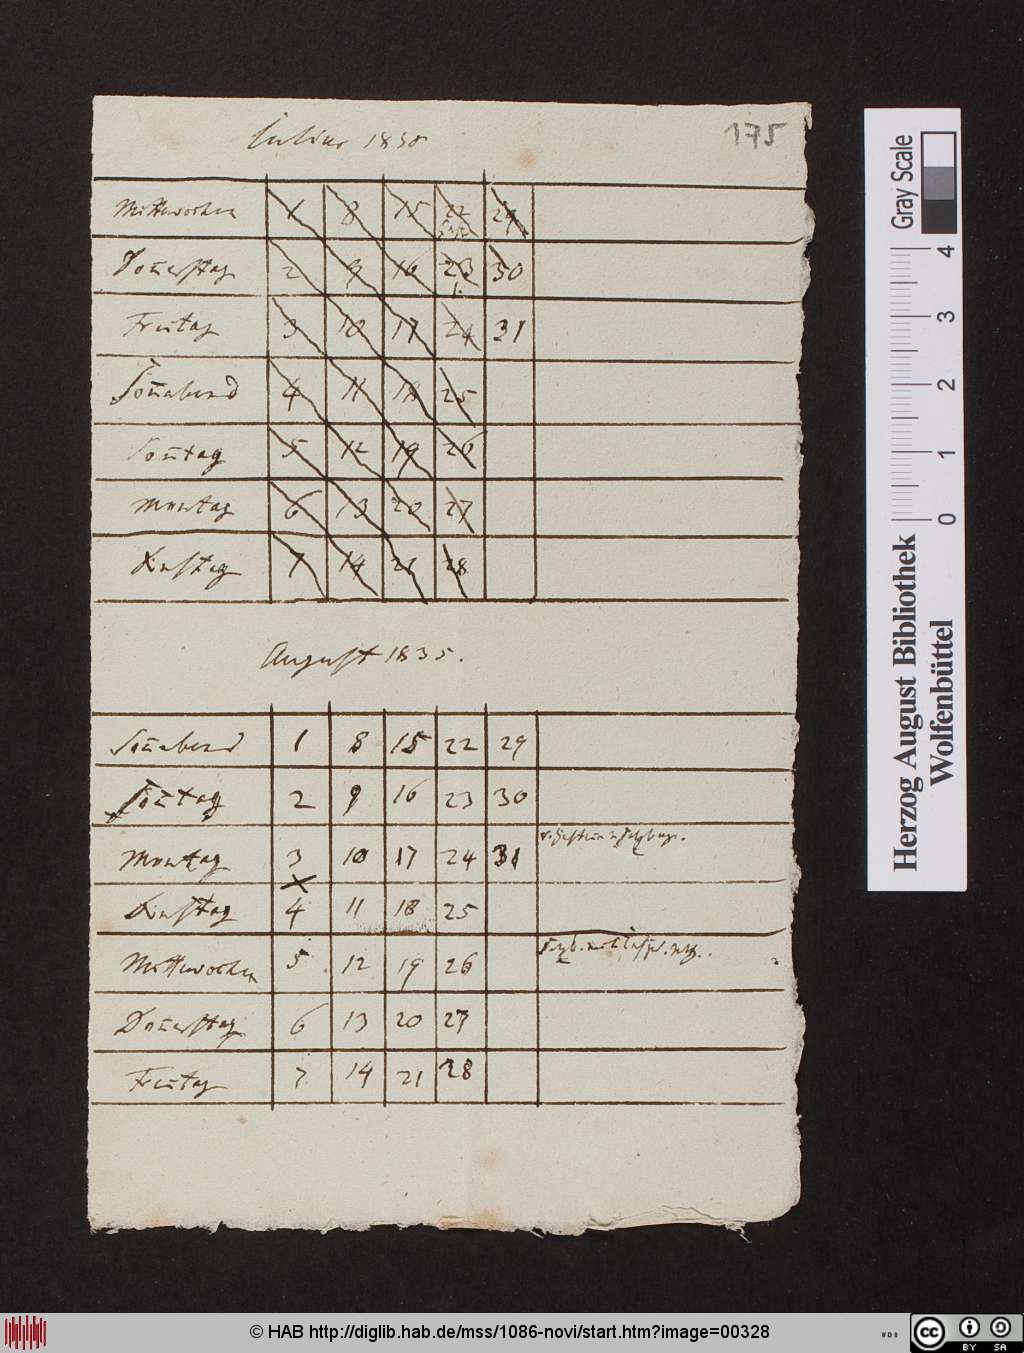 175
Julius 1835
Mittwochen 1 8 15 22 29
Donerstag 2 9 16 23 30
Freitag 3 10 17 24 31
Sonabend 4 11 18 25
Sontag 5 12 19 26
Montag 6 13 20 27
Dinstag 7 14 21 28
August 1835.
Sonabend 1 8 15 22 29
Sontag 2 9 16 23 30
Montag 3 10 17 24 31
Dinstag 4 11 18 25
Mittwochen 5 12 19 26
Donerstag 6 13 20 27
Freitag 7 14 21 28
Gray Scale
0 1 2 3 4
Herzog August Bibliothek
Wolfenbüttel
© HAB http://diglib.hab.de/mss/1086-novi/start.htm?image=00328
WDB
cc BY SA